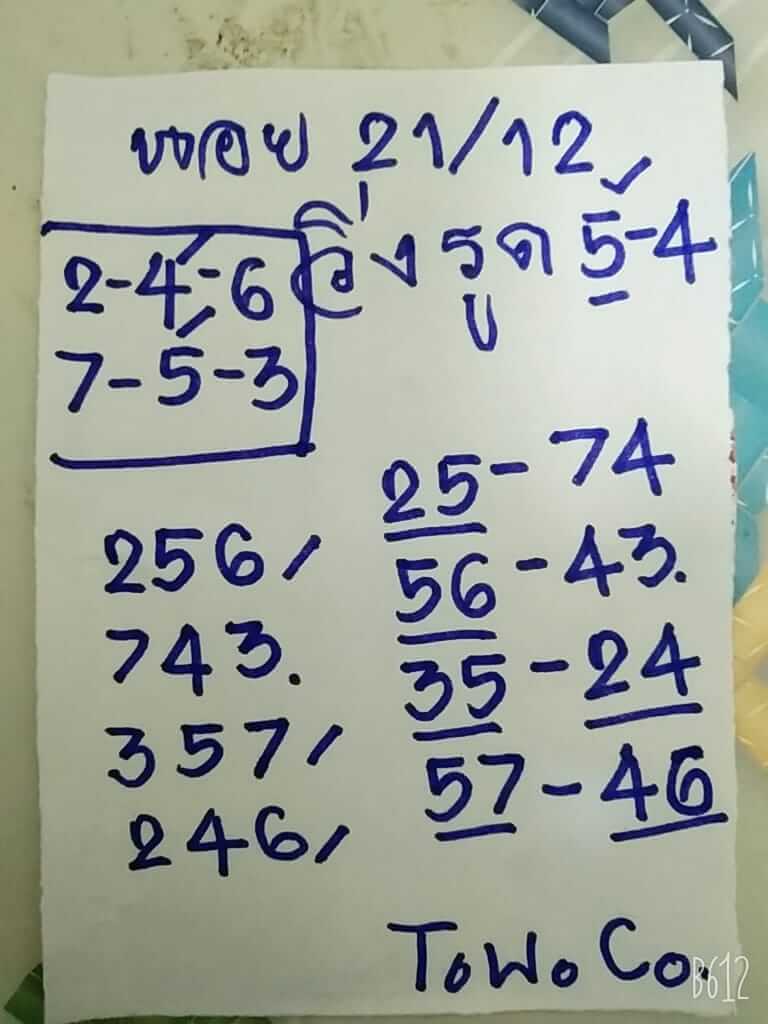 หอย 21/12
2-4-6 วิ่งรูด 5-4
7-5-3
25-74
256/
56-43.
743.
35-24
357/
57-46
246/
ToWo Co.
B612